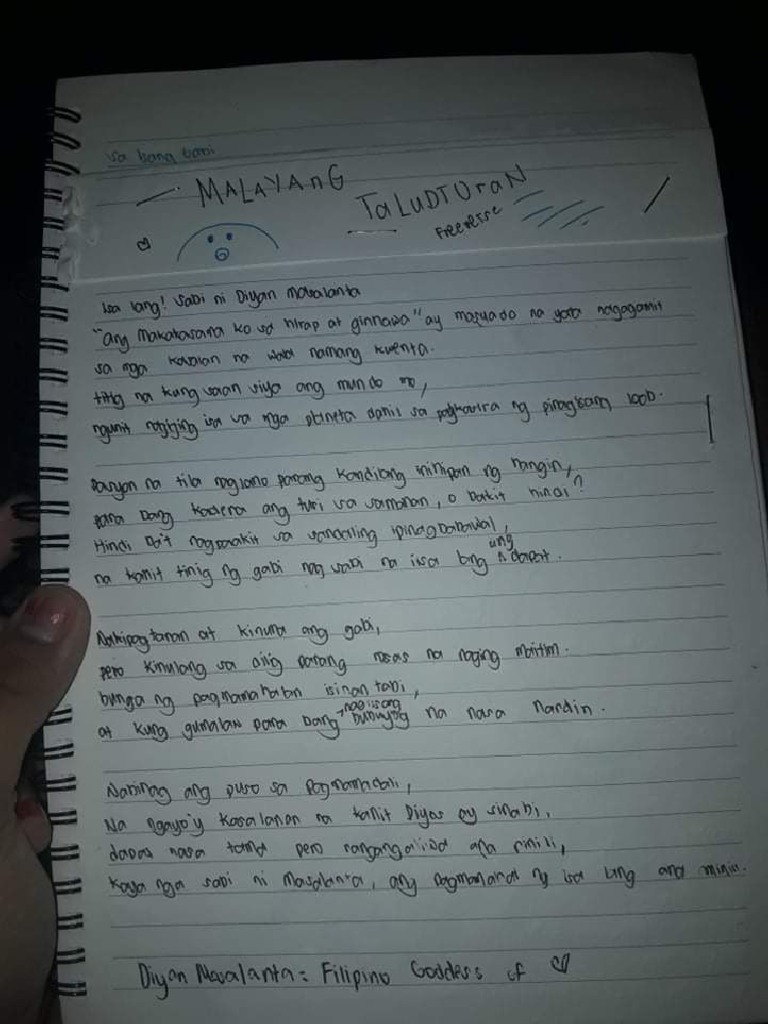 isa bang gabi
MALAYAnG
TaLUDTUraN
Freeverse
Isa lang! sabi ni Diyan masalanta
"ang makakasama ko sa hirap at ginhawa" ay masyado na yata nagagamit
sa mga kasalan na wala namang kwenta.
titig na kung saan siya ang mundo mo,
ngunit nagiging isa sa mga planeta dahil sa pagkawasak ng pinagisang loob.
pasyon na tila naglaho parang kandilang inihipan ng hangin,
para bang kadena ang turi sa samahan, o bakit hindi?
Hindi ba't nagpaakit sa sandaling ipinagbabawal,
na kahit tinig ng gabi nag sabi na isa lang ang dapat.
Nakipagtanan at kinuha ang gabi,
pero kinulang sa dilig parang rosas na naging maitim.
bunga ng pagmamahalan isinantabi,
at kung gumalaw para bang nag iisang bubuyog na nasa hardin.
Nabihag ang puso sa pagmamadali,
Na ngayo'y kasalanan na kahit Diyos ay sinabi,
dapat nasa tama pero pinili,
Kaya nga sabi ni masalanta, ang pagmamahal ng isa lang ang
Diyan Masalanta = Filipino Goddess of ♡